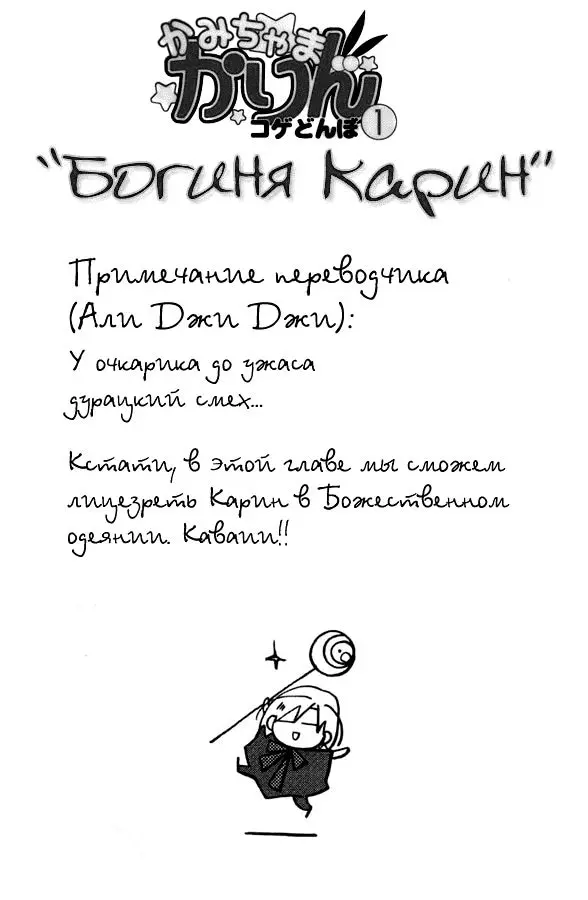 かみちゃま
かりん
コゲどんぼ 1
"Богиня Карин"
Примечание переводчика
(Али Джи Джи):
У очкарика до ужаса
дурацкий смех...
Кстати, в этой главе мы сможем
лицезреть Карин в Божественном
одеянии. Каваии!!